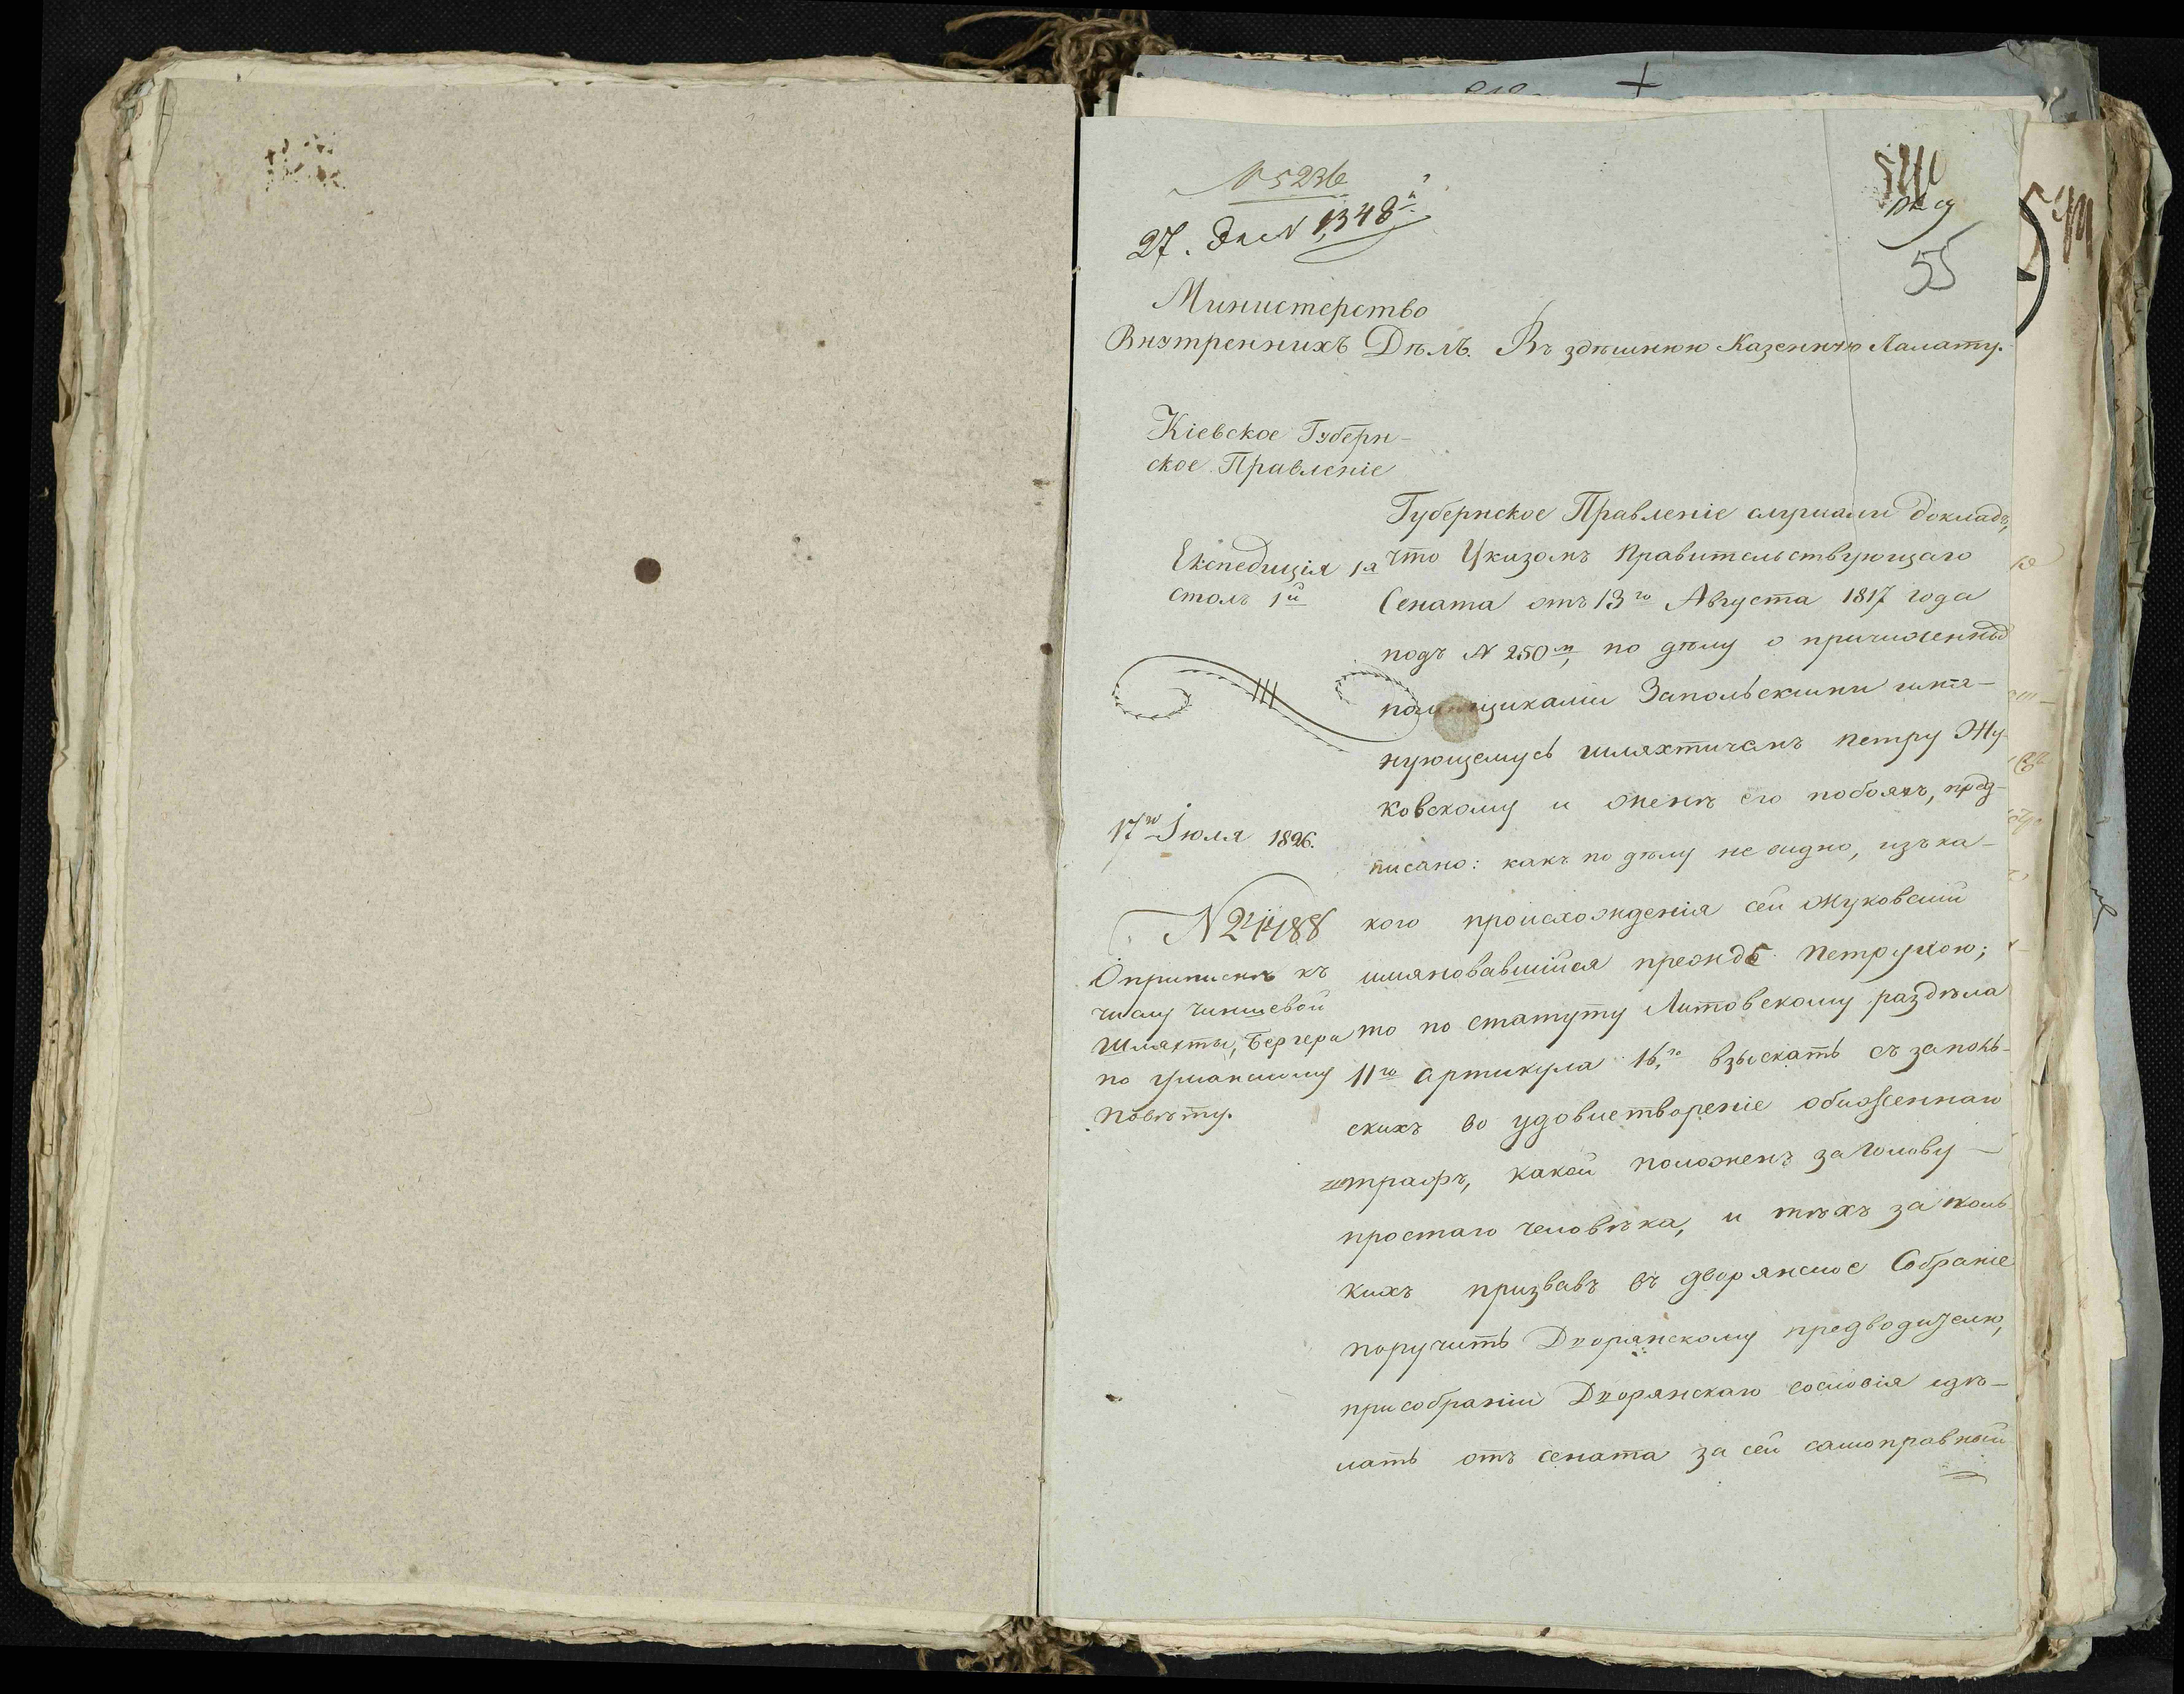 N 5236
27. Дек N 1348й
540
55
Министерство
Внутреннихъ Дѣлъ.
Въ здѣшнюю Казенную Палату.
Кіевское Губерн-
ское Правленіе
Експедиція 1я
столъ 1й
17го Іюля 1826.
N 24488
О припискѣ къ
числу чиншевой
шляхты, Бергера
по Уманскому
повѣту.
Губернское Правленіе слушали докладъ,
что Указомъ Правительствующаго
Сената отъ 13го Августа 1817 года
подъ N 250м, по дѣлу о причиненныхъ
помѣщиками Запольскими имя-
нующемусь шляхтичамъ Петру Жу-
ковскому и женѣ его побояхъ, пред-
писано: какъ по дѣлу не видно, изъ ка-
кого происхожденія сей Жуковскій
имяновавшійся прежде Петрухою;
то по статуту Литовскому раздѣла
11го артикула 16го взыскать съ Заполь-
скихъ во удовлетвореніе обиженнаго
штрафъ, какой положенъ за голову
простаго человѣка, и тѣхъ Заполь-
кихъ призвавъ въ дворянское Собраніе
поручить Дворянскому предводителю,
при собраніи Дворянскаго сословія сдѣ-
лать отъ Сената за сей самоправный